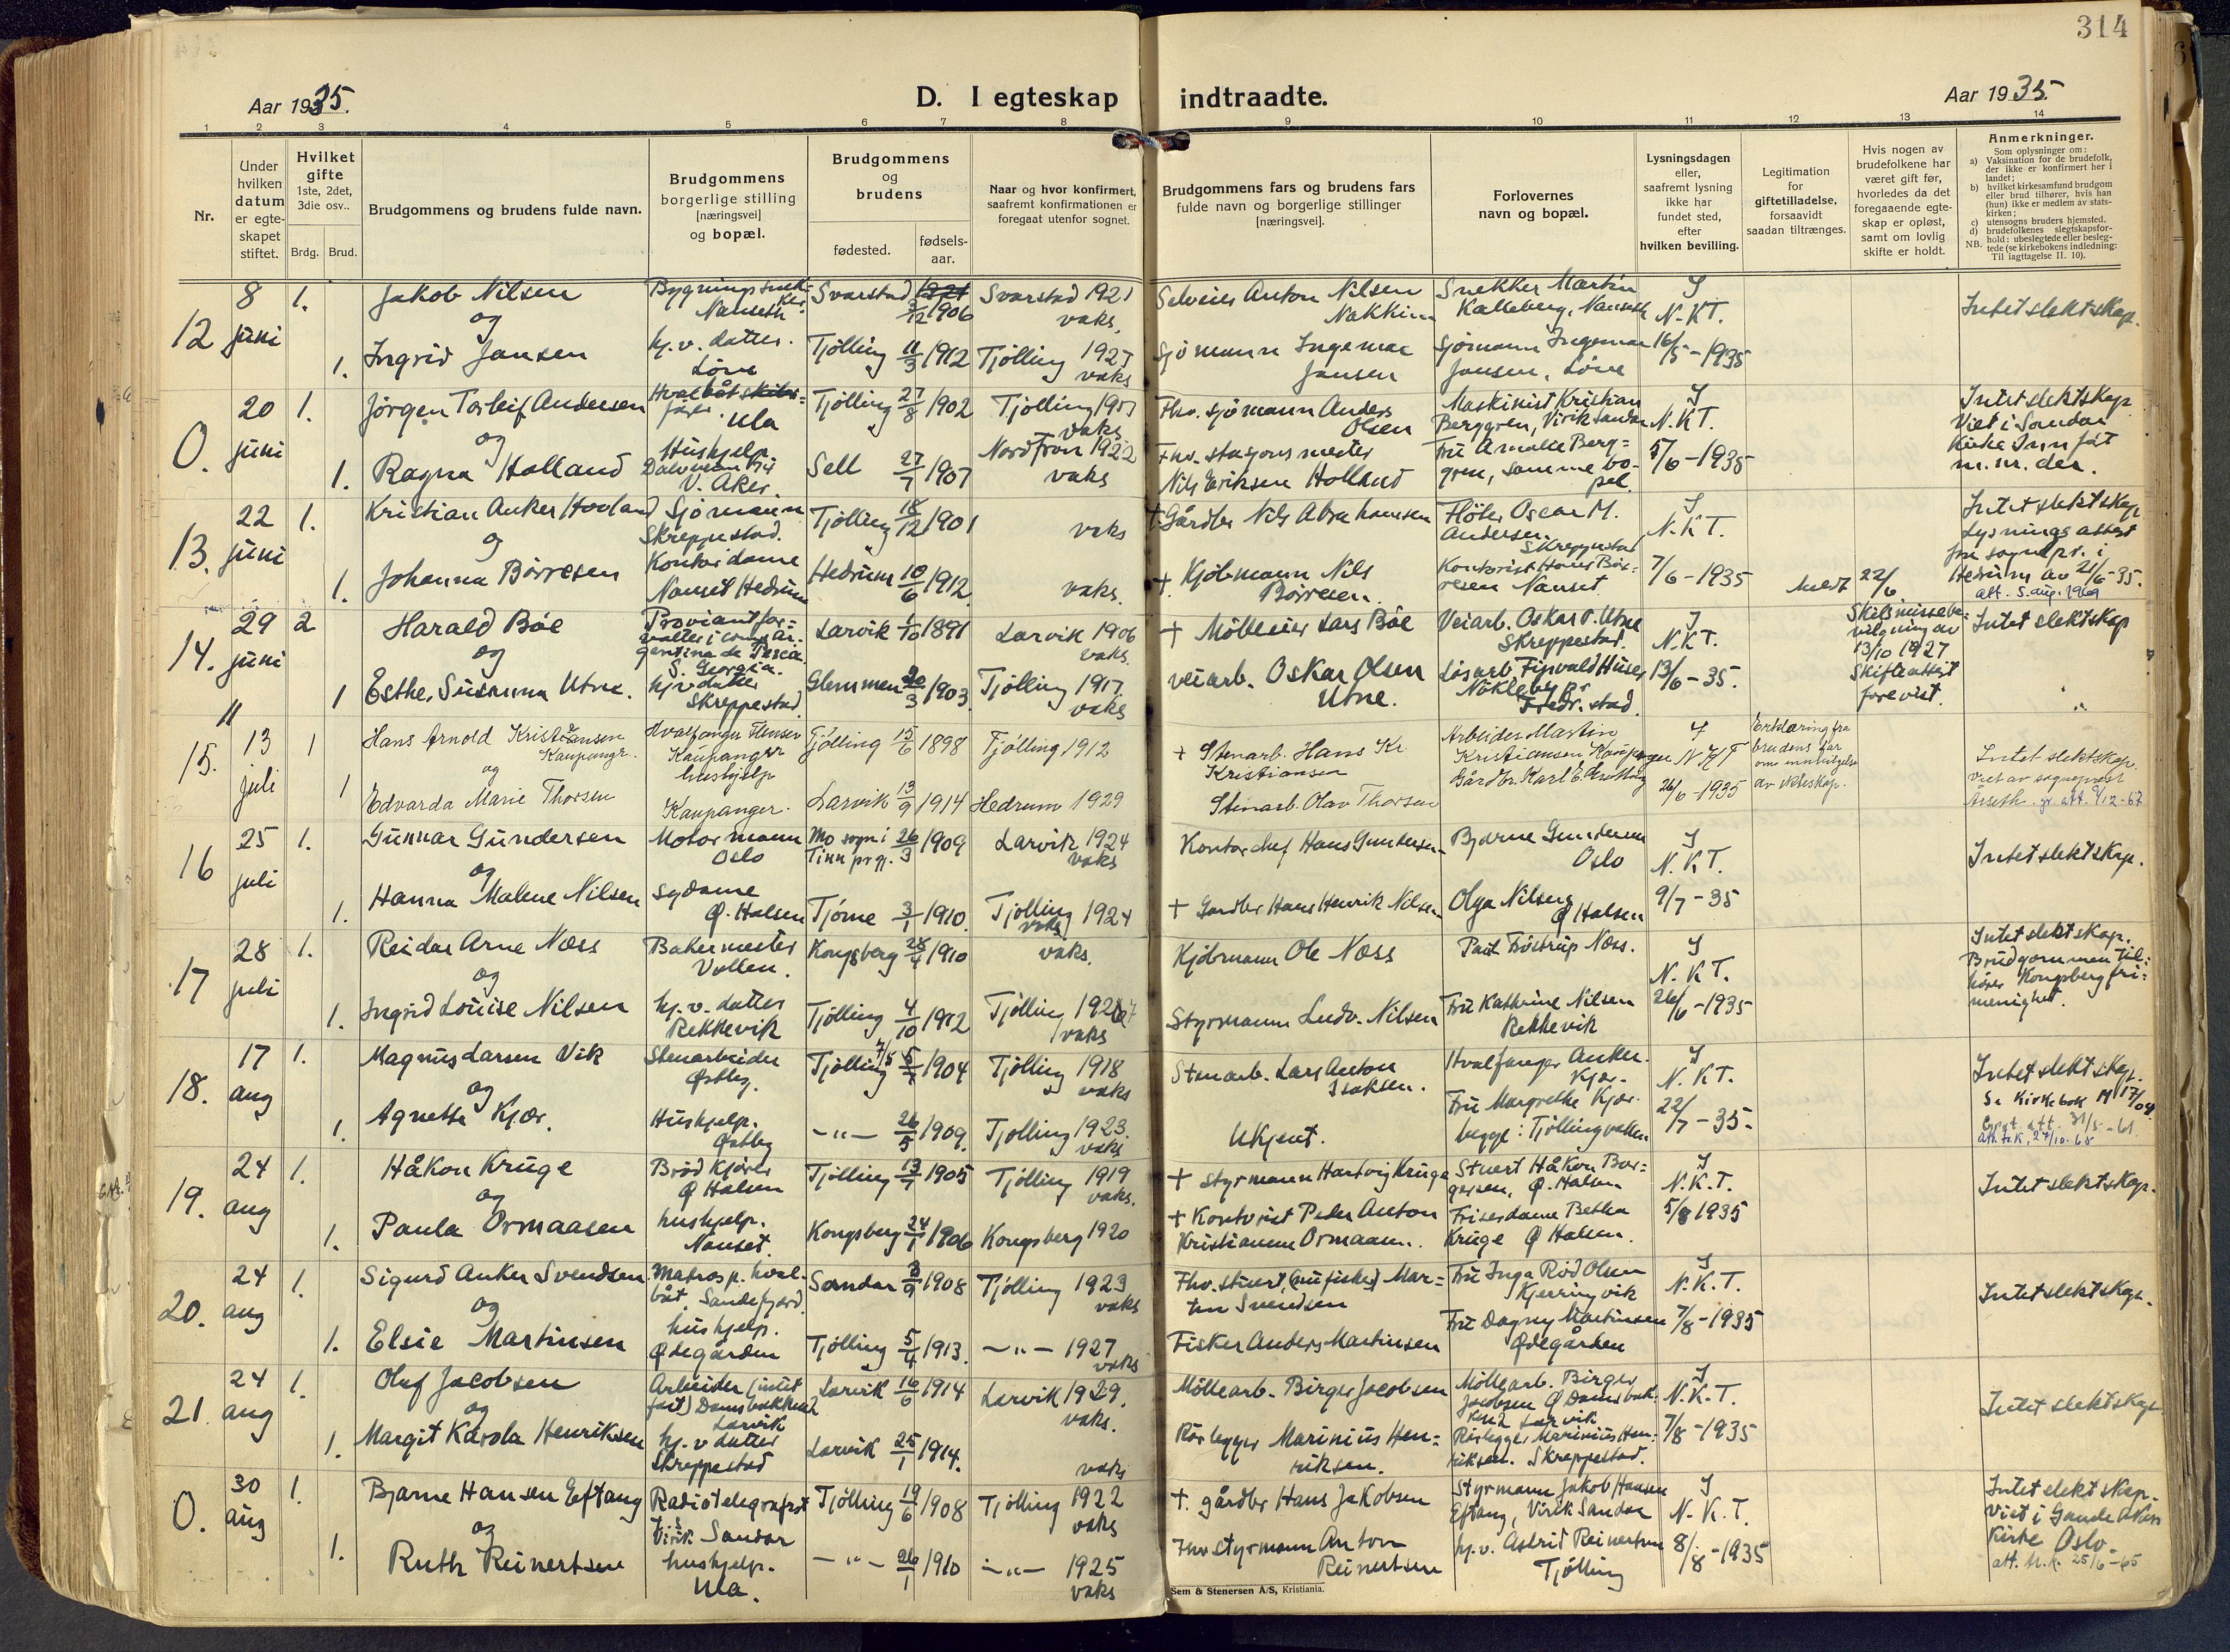 314
Aar 1935.
D. I egteskap indtraadte.
Aar 1935.
1 2 3 4 5 6 7 8 9 10 11 12 13 14
Nr.
Under hvilken datum er egteskapet stiftet.
Hvilket gifte
1ste, 2det, 3die osv..
Brdg. Brud.
Brudgommens og brudens fulde navn.
Brudgommens borgerlige stilling [næringsvei] og bopæl.
Brudgommens og brudens
fødested.
fødsels-aar.
Naar og hvor konfirmert, saafremt konfirmationen er foregaat utenfor sognet.
Brudgommens fars og brudens fars fulde navn og borgerlige stillinger [næringsvei].
Forlovernes navn og bopæl.
Lysningsdagen eller, saafremt lysning ikke har fundet sted, efter hvilken bevilling.
Legitimation for giftetilladelse, forsaavidt saadan tiltrænges.
Hvis nogen av brudefolkene har været gift før, hvorledes da det foregaaende egteskap er opløst, samt om lovlig skifte er holdt.
Anmerkninger.
Som oplysninger om:
a) Vaksination for de brudefolk, der ikke er konfirmert her i landet;
b) hvilket kirkesamfund brudgom eller brud tilhører, hvis han (hun) ikke er medlem av statskirken;
c) utensogns bruders hjemsted.
d) brudefolkenes slegtskapsforhold: ubeslegtede eller beslegtede (se kirkebokens indledning:
NB. Til iagttagelse II. 10).
12 8 juni 1. Jakob Nilsen Nanseth Svarstad 3/12 1906 Svarstad 1921 vaks. Selveier Anton Nilsen Nakkim Snekker Martin Kalleberg, Nanseth J N.K.T. Intet slektskap.
og
1. Ingrid Jansen hj.v. datter. Løve Tjølling 11/3 1912 Tjølling 1927 vaks Sjømann Ingemar Jansen Sjømann Ingemar Jansen, Løve 16/5-1935
0. 20 juni 1. Jørgen Torleif Andersen Ula Tjølling 27/8 1902 Tjølling vaks Fhv. sjømann Anders Olsen Maskinist Kristian Berggren, Virik Sandar J N.K.T. Intet slektskap Viet i Sandar Kirke
og
1. Ragna Holland Hushjelp V. Aker. Sell 27/7 1907 Nord Fron 1922 vaks Fhv. stasjonsmester Nils Eriksen Holland Fru Amalie Berggren, samme bopel. 5/6-1935 m.nr. der.
13. 22 juni 1. Kristian Anker Hovland Sjømann Skreppestad. Tjølling 18/12 1901 vaks + Gårdbr Nils Abrahamsen Fløter Oscar M. Andersen. Skreppestad J N.K.T. Intet slektskap Lysningsattest fra sognepr. i Hedrum av 21/6-35.
og
1. Johanna Børresen Kontordame Nanset Hedrum Hedrum 10/6 1912 vaks. + Kjøbmann Nils Børresen. Kontorist Hans Børresen Nanset 7/6-1935 Meldt 22/6 att. 5. aug. 1969
14. 29 juni 2 Harald Bøe Proviantforvalter i comp. Argentina de Pesca S. Georgia. Larvik 1/10 1891 Larvik 1906 vaks. + Mølleeier Lars Bøe Veiarb. Oskar O. Utne Skreppestad. J N.K.T. Skilsmissebevilgning av 13/10 1927 Skifteattest forevist. Intet slektskap
og
1 Esther Susanna Utne. hjv datter Skreppestad. Glemmen 20/3 1903 Tjølling 1917. vaks veiarb. Oskar Olsen Utne. Nøkleby pr Fredr.stad. 13/6-35.
15. 13 juli 1 Hans Arnold Kristiansen Kaupanger. Hvalfanger Kaupanger Tjølling 15/6 1898 Tjølling 1912 + Stenarb. Hans Kr. Kristiansen Arbeider Martin Kristiansen Kaupanger J N.K.T Erklæring fra brudens far om innvilgelse av ekteskap. Intet slektskap. Viet av sogneprest Årseth.
og
1 Edvarda Marie Thorsen hushjelp Kaupanger. Larvik 13/9 1914 Hedrum 1929 Stenarb. Olav Thorsen 26/6-1935
16 25 juli 1. Gunnar Gundersen Motormann Oslo Mo sogn i Tinn prgj. 26/3 1909 Larvik 1924 vaks Kontorchef Hans Gundersen Bjarne Gundersen Oslo J N.K.T. Intet slektskap.
og
1. Hanna Malene Nilsen sydame Ø. Halsen Tjøme 3/1 1910. Tjølling 1924 vaks + Gardbr Hans Henrik Nilsen Olga Nilsen Ø Halsen 9/7-35
17 28 juli 1. Reidar Arne Næss Bakermester Vollen. Kongsberg 28/4 1910 vaks. Kjøbmann Ole Næss Paul Frøstrup Næss. J N.K.T. Intet slektskap. Brudgommen tilhører Kongsberg frimenighet.
og
1. Ingrid Louise Nilsen hj.v. datter Rekkevik Tjølling 4/10 1912 Tjølling vaks Styrmann Ludv. Nilsen Fru Kathrine Nilsen Rekkevik 26/6-1935
18. 17 aug 1. Magnus Larsen Vik Stenarbeider Østby. Tjølling 1904 Tjølling 1918 vaks Stenarb. Lars Anton Isaksen. Hvalfanger Anker Kjær. J N.K.T. Intet slektskap. Se Kirkebok
og
1. Agnethe Kjær. Hushjelp. Østby -"- 26/5 1909. Tjølling 1923. vaks Ukjent. Fru Margrethe Kjær. begge: Tjøllingvollen 22/7-35-
19. 24 aug 1. Håkon Kruge Brødkjører Ø Halsen Tjølling 13/7 1905 Tjølling 1919 vaks. + styrmann Hartvig Kruge Stuert Håkon Borgersen, Ø. Halsen J N.K.T. Intet slektskap.
og
1. Paula Ormaasen hushjelp. Nanset. Kongsberg 24/1 1906 Kongsberg 1920 + Kontorist Peder Anton Kristiansen Ormaasen. Frisørdame Betha Kruge Ø Halsen. 5/8 1935
20. 24 aug 1. Sigurd Anker Svendsen Matros p. hvalbåt, Sandefjord. Sandar 3/9 1908 Tjølling 1923 vaks Fhv. stuert, (nu fisker) Martin Svendsen Fru Inga Rød Olsen Kjerringvik J N.K.T. Intet slektskap.
og
1. Elsie Martinsen hushjelp. Ødegården Tjølling 5/4 1913. -"- 1927 vaks Fisker Anders Martinsen Fru Dagny Martinsen Ødegården 7/8-1935
21. 24 aug 1. Oluf Jacobsen Arbeider (intet fast) Larvik Larvik 16/6 1914 Larvik 1929. vaks. Møllearb. Birger Jacobsen Møllearb. Birger Jacobsen Larvik J N.K.T. Intet slektskap
og
1. Margit Karola Henriksen hj.v datter Skreppestad Larvik 25/1 1914. vaks Rørlegger Marinius Henriksen. Rørlegger Marinius Henriksen. Skreppestad. 7/8-1935
0. 30 aug 1. Bjarne Hansen Eftang Radiotelegrafist Virik Sandar Tjølling 19/6 1908 Tjølling 1922 vaks +. gårdbr Hans Jakobsen Styrmann Jakob Hansen Eftang, Virik Sandar J N.K.T. Intet slektskap. Viet i Gamle Aker Kirke Oslo.
og
1. Ruth Reinertsen hushjelp. Ula. -"- 26/1 1910 -"- 1925 vaks Fhv styrmann Anton Reinertsen hj.v. Astrid Reinertsen Tjølling 8/8-1935 att. 25/6-65
Sem & Stenersen A/S, Kristiania.